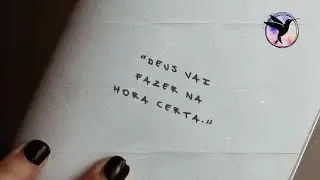 “DEUS VAI
FAZER NA
HORA CERTA.”